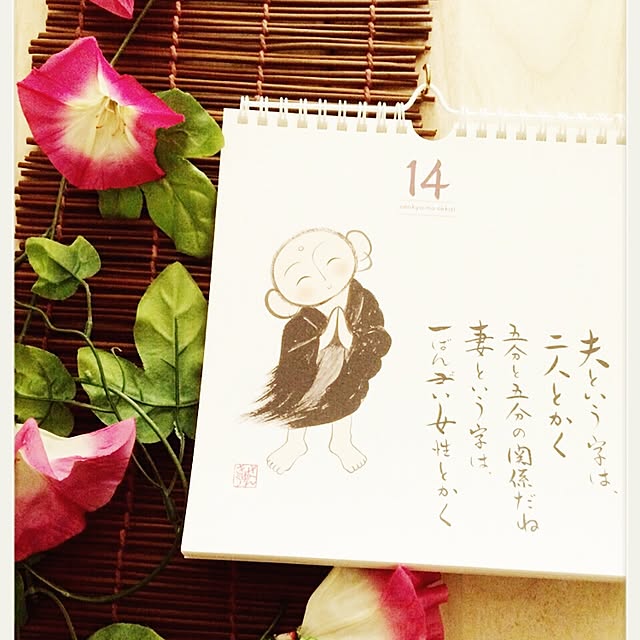 14
夫という字は、
二人とかく
五分と五分の関係だね
妻という字は、
一ばんヨい女性とかく